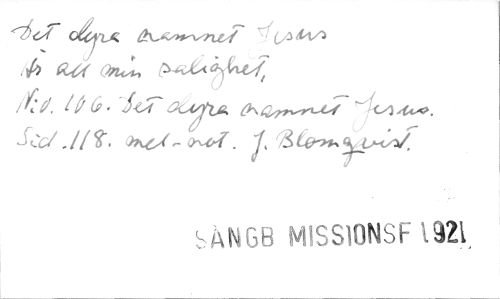 Det dyra namnet Jesus
är all min salighet,
N:o. 106. Det dyra namnet Jesus.
Sid. 118. mel-not. J. Blomqvist.
SÅNGB MISSIONSF 1921